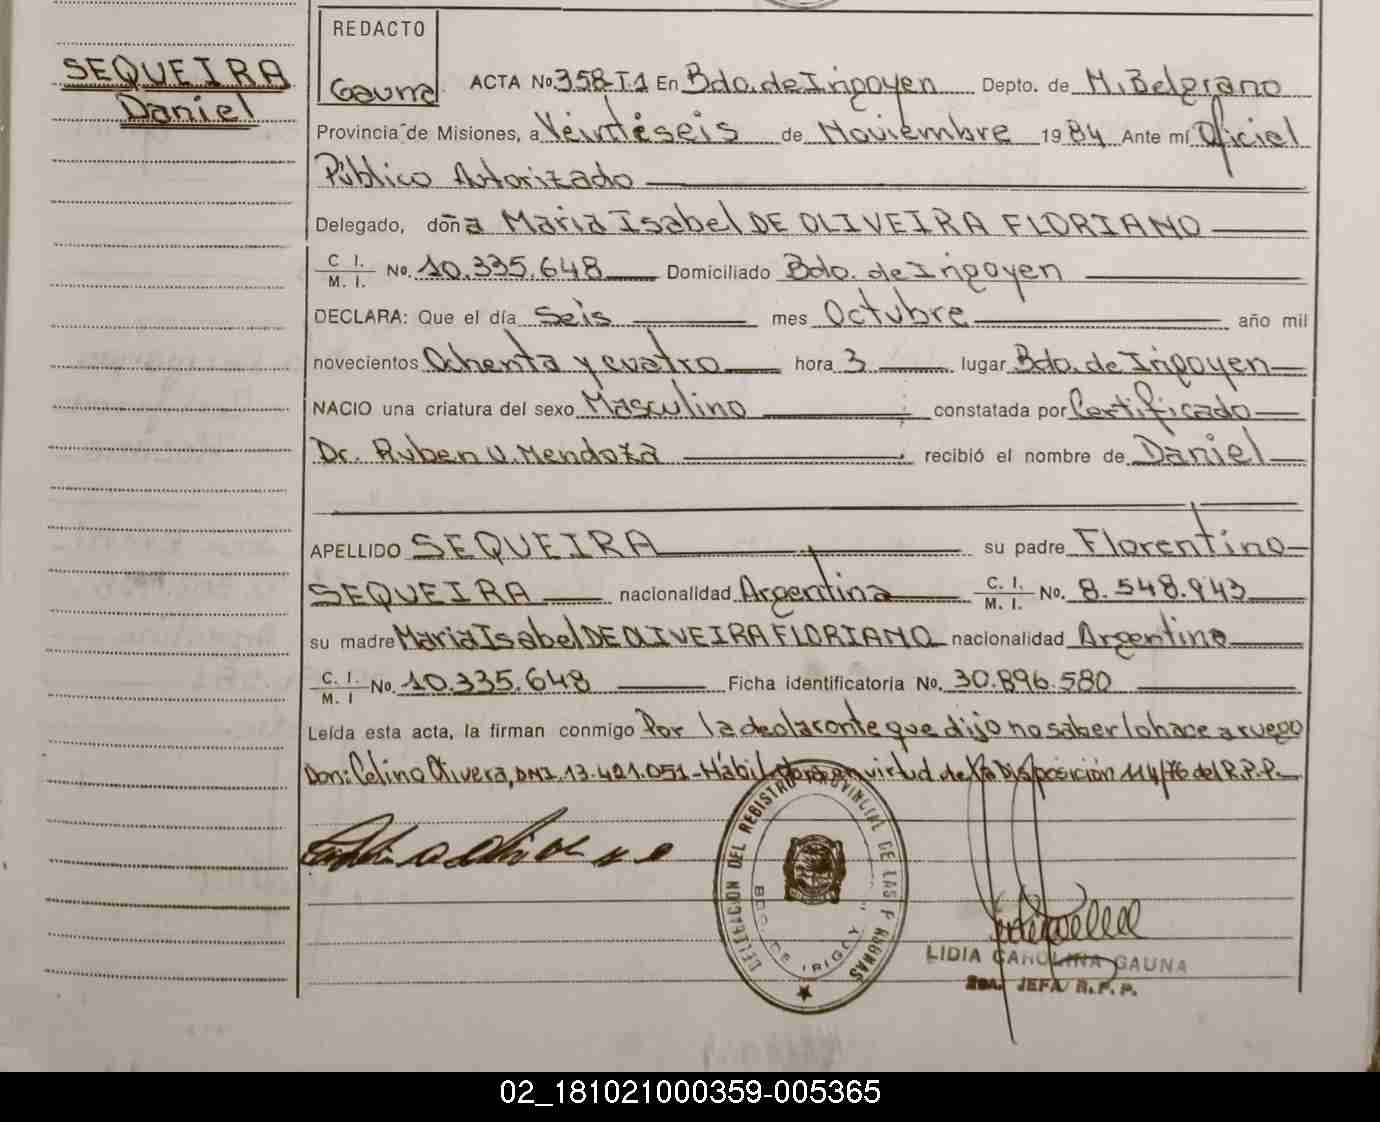 SEQUEIRA
Daniel
REDACTO
Gauna
ACTA No. 358-T.1 En Bdo. de Irigoyen Depto. de M. Belgrano
Provincia de Misiones, a Veintiseis de Noviembre 1984 Ante mí Oficial
Público Autorizado
Delegado, doña Maria Isabel DE OLIVEIRA FLORIANO
C. I. / M. I. No. 10.335.648 Domiciliado Bdo. de Irigoyen
DECLARA: Que el día Seis mes Octubre año mil
novecientos Ochenta y cuatro hora 3 lugar Bdo. de Irigoyen
NACIO una criatura del sexo Masculino constatada por Certificado
Dr. Ruben V. Mendoza recibió el nombre de Daniel
APELLIDO SEQUEIRA su padre Florentino
SEQUEIRA nacionalidad Argentina C. I. / M. I. No. 8.548.943
su madre Maria Isabel DE OLIVEIRA FLORIANO nacionalidad Argentina
C. I. / M. I No. 10.335.648 Ficha identificatoria No. 30.896.580
Leída esta acta, la firman conmigo Por la declarante que dijo no saber lo hace a ruego
Don: Celino Olivera, DNI. 13.421.051 - Hábil para en virtud de la Disposición 114/76 del R.P.P.
DELEGACION DEL REGISTRO PROVINCIAL DE LAS PERSONAS
BDO. DE IRIGOY
LIDIA CAROLINA GAUNA
2da. JEFA R.P.P.
02_181021000359-005365